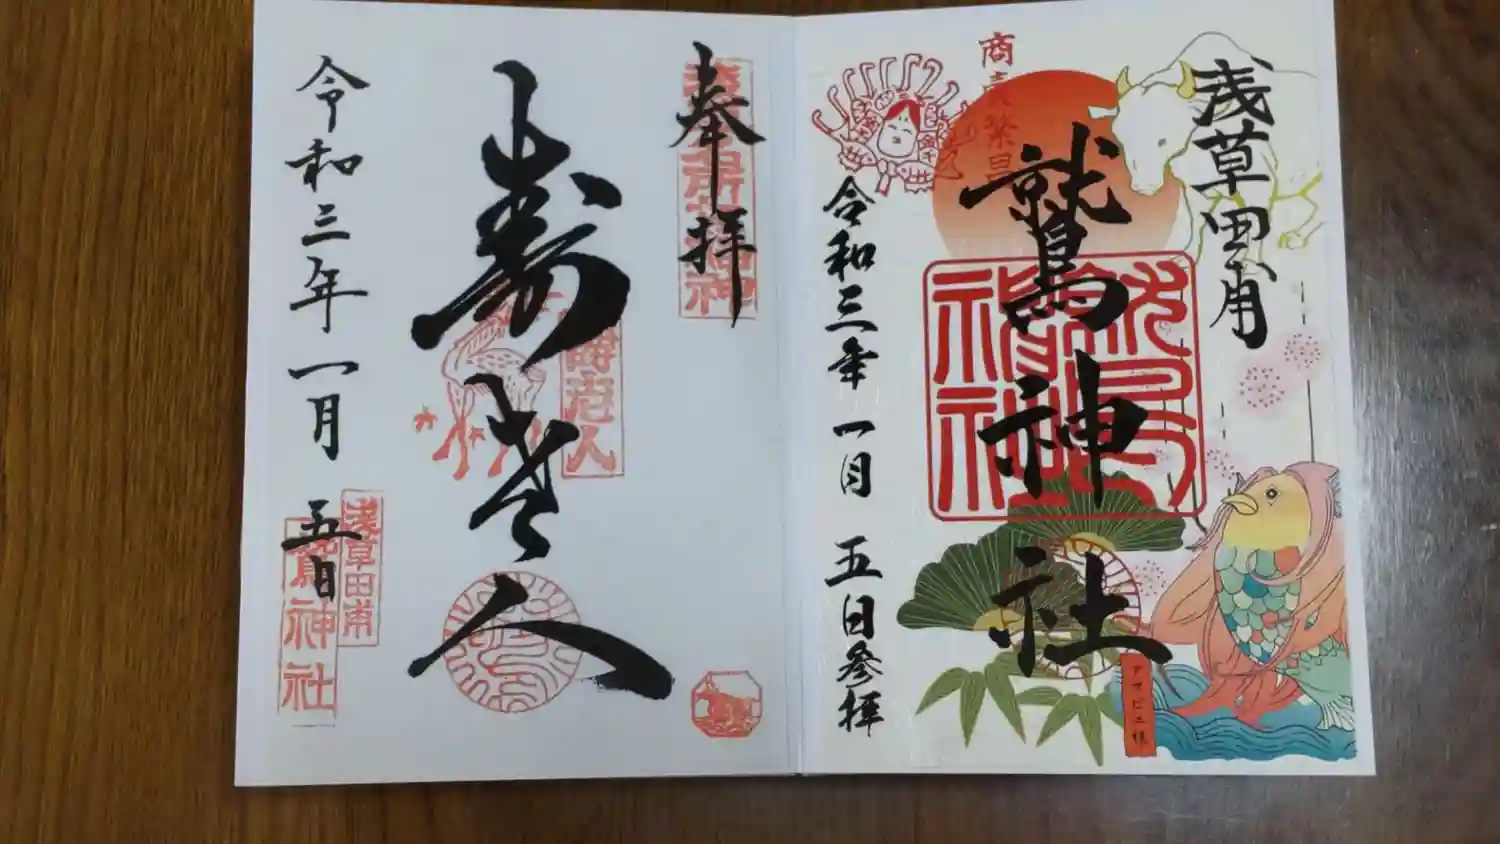 浅草田甫
商売繁昌
鷲神社
令和三年一月五日参拝
アマビエ様
奉拝
寿老人
寿老人
令和三年一月五日
浅草田甫
鷲神社